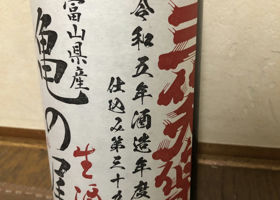 三笑楽
令和五年酒造年度
仕込み第三十
富山県産
亀の尾
生酒